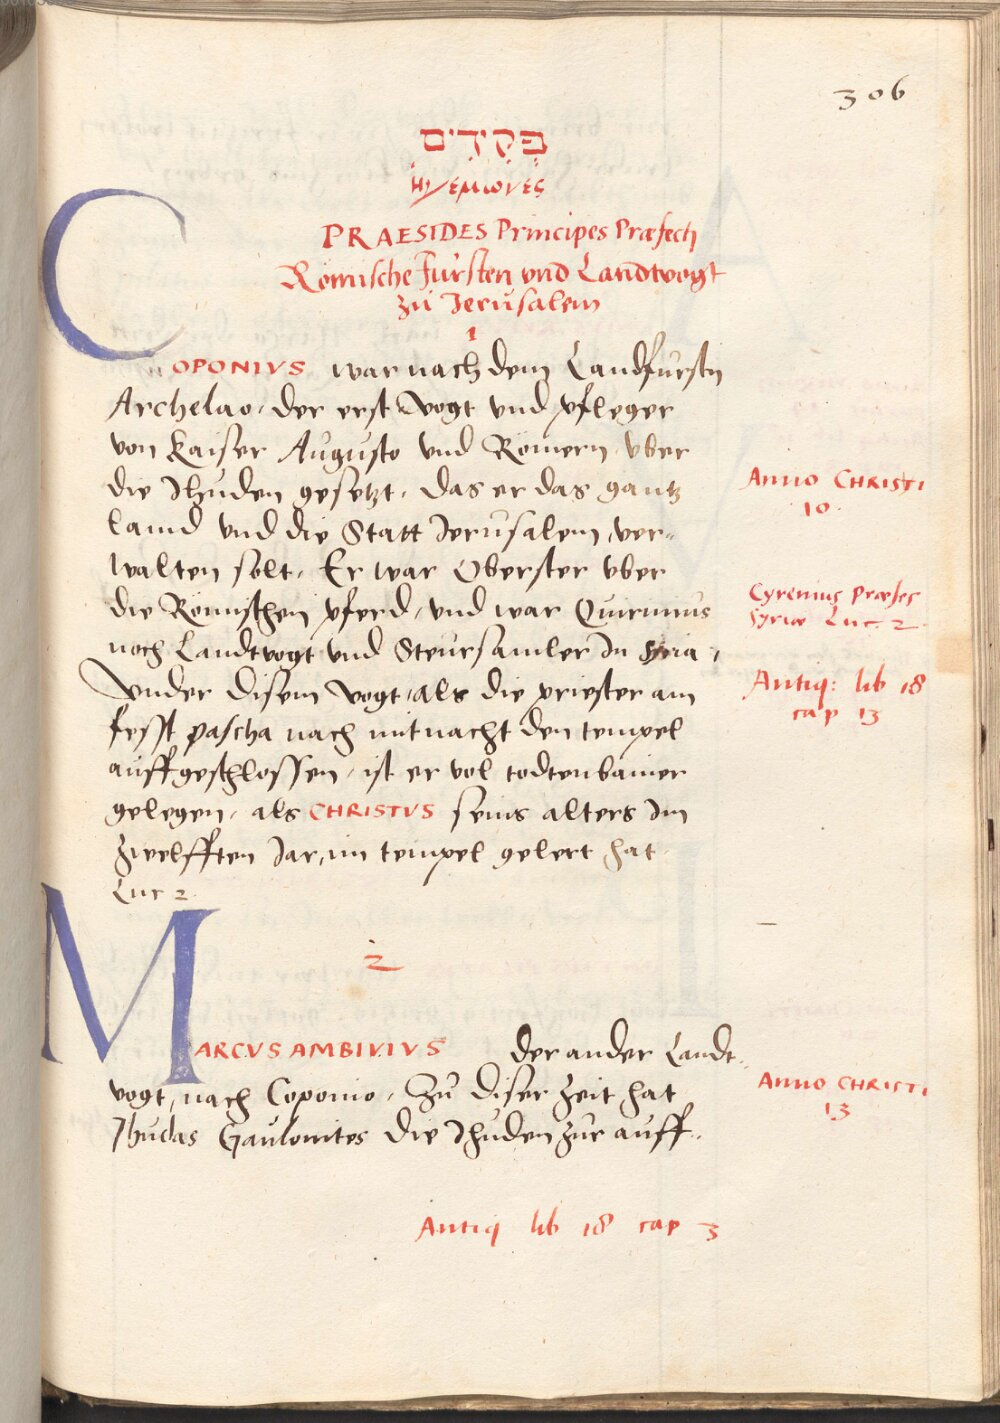 306
פְּקִדִים
Ηγέμωνες
PRAESIDES Principes Præfecti
Römische Fürsten vnd Landtvogt
zu Jerusalem
1
COPONIVS war nach dem Landfurstn
Archelao, der erst Vogt vnd pfleger
von Kaiser Augusto vnd Römern vber
die Jhuden gesetzt, das er das gantz
Lannd vnd die Statt Jerusalem, ver-
walten solt, Er war Oberster vber
die Römischen pferd, vnd war Quirinius
noch Landtvogt vnd Steursamler In Syria,
Vnder disem Vogt, als die priester am
fesst pascha nach mitnacht den tempel
auffgeschlossen, ist er vol todtenbainer
gelegen, als CHRISTVS seins alters Im
zwelfften Jar, im tempel gelert hat
Luc 2
Anno CHRISTI
10
Cyrenius Præses
Syriæ Luc. 2
Antiq: lib 18
cap 13
2
MARCVS AMBIVIVS der ander Landt-
vogt, nach Coponio, Zu diser zeit hat
Jhudas Gaulonites die Jhuden zur auff-
Anno CHRISTI
13
Antiq lib 18 cap 3